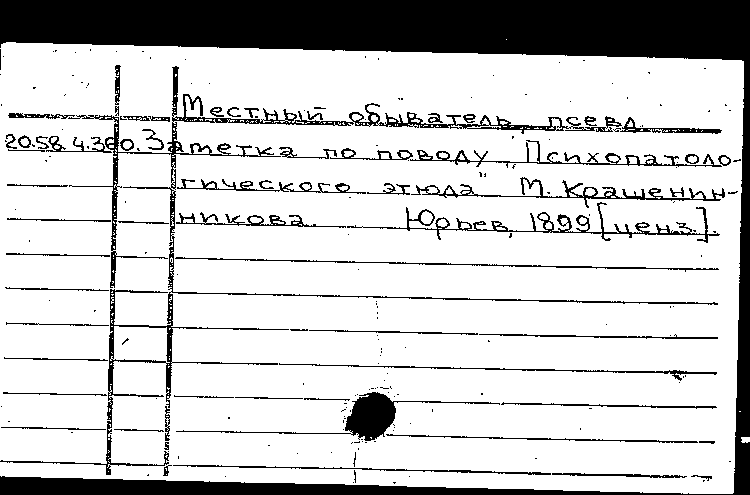 Местный обыватель, псевд.
20.58.4.360. Заметка по поводу „Психопатоло-
гического этюда" М. Крашенин-
никова. Юрьев, 1899 [ценз.].